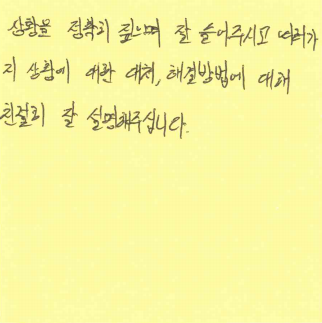 상황을 정확히 짚으며 잘 들어주시고 여러가
지 상황에 대한 대처, 해결방법에 대해
친절히 잘 설명해주십니다.